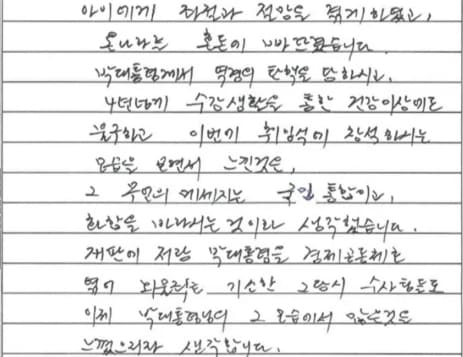 아이에게 좌절과 절망을 겪게 하였고,
온나라는 혼돈에 빠졌었습니다.
박대통령께서 역경의 탄핵을 당하시고,
4년여가 수감생활을 통한 건강이상에도
불구하고 이번기 취임식에 참석하시는
모습을 보면서 느낀것은,
그 무언의 메세지는 국민통합이고,
화합을 바라시는 것이라 생각했습니다.
재판에 저랑 박대통령을 경제공동체로
엮어 뇌물죄로 기소한 그당시 수사팀들도
이제 박대통령님의 그 모습에서 많은것은
느꼈으리라 생각합니다.